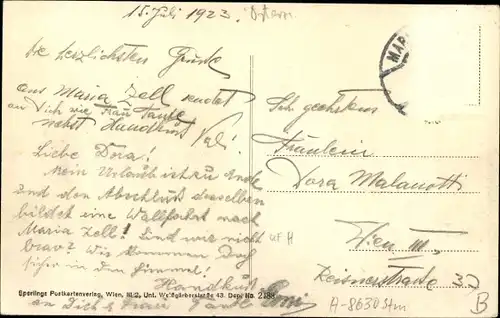 15. Juli 1923.
Die herzlichsten Grüße
aus Maria Zell sendet
an Dich wie Frau Tante
nebst Handkuß
Vali
Liebe Dora!
Mein Urlaub ist zu Ende
und den Abschluß desselben
bildet eine Wallfahrt nach
Maria Zell! Sind wir nicht
brav? Wir kommen
sicher in den Himmel!
Handkuß
an Dich & Frau Tante
MAR
Fräulein
Dora Malanotti
Wien III.
Reisnerstraße 32
Sperlings Postkartenverlag, Wien, III/2, Unt. Weißgärberstraße 43. Dep. No. 218
UFH
A-8630 Stm
B